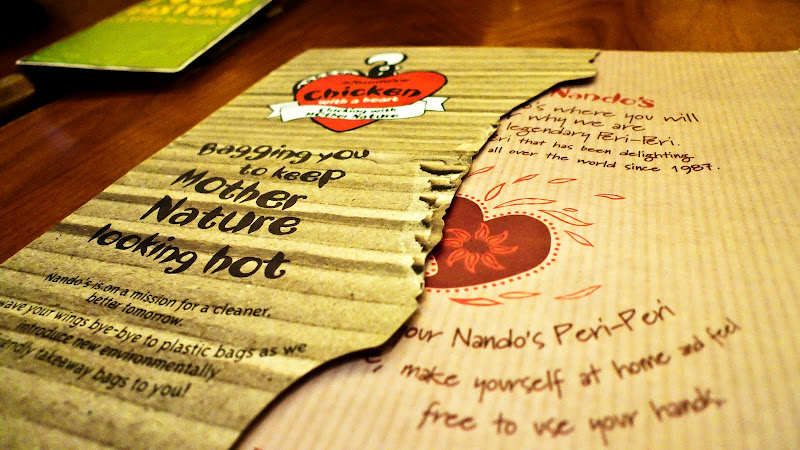 Nando's
Chicken
with a heart
Clucking with
Mother Nature
Bagging you
to keep
Mother
Nature
looking hot
Nando's is on a mission for a cleaner,
better tomorrow.
wave your wings bye-bye to plastic bags as we
introduce new environmentally
takeaway bags to you!
Nando's
where you will
why we are
legendary Peri-Peri.
that has been delighting
all over the world since 1987.
Nando's Peri-Peri
make yourself at home and feel
free to use your hands.